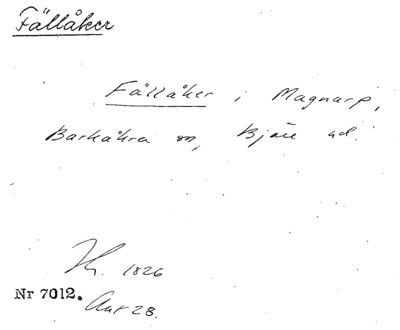 Fällåker
Fällåker i Magnarp,
Barkåkra sn, Bjäre hd.
1826
Nr 7012.
28.